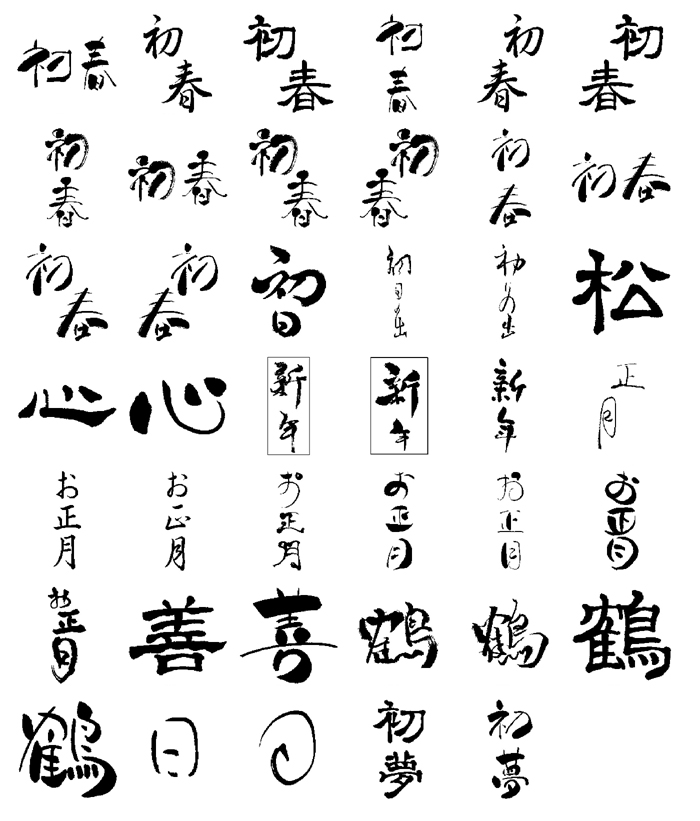 初春 初春 初春 初春 初春 初春
初春 初春 初春 初春 初春 初春
初春 初春 初日 初日の出 初日の出 松
心 心 新年 新年 新年 正月
お正月 お正月 お正月 お正月 お正月 お正月
お正月 善 善 鶴 鶴 鶴
鶴 日 日 初夢 初夢